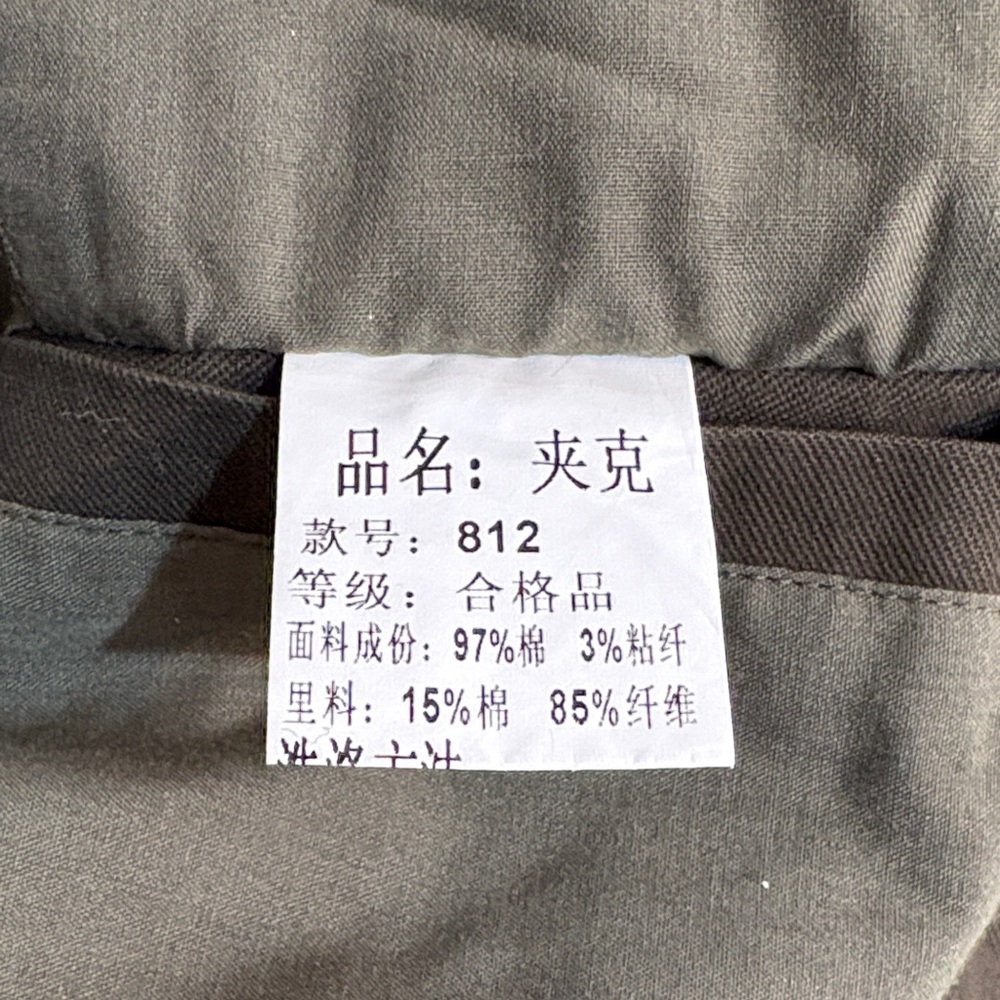 品名：夹克
款号：812
等级：合格品
面料成份：97%棉 3%粘纤
里料：15%棉 85%纤维
洗涤方法